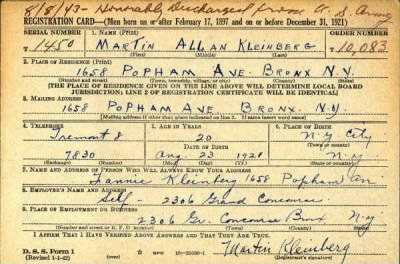 8/8/43 - Honorably Discharged from U.S. Army
REGISTRATION CARD—(Men born on or after February 17, 1897 and on or before December 31, 1921)
SERIAL NUMBER 1. NAME (Print) ORDER NUMBER
T 1450 MARTIN ALLAN KLEINBERG T 10,083
2. PLACE OF RESIDENCE (Print)
1658 POPHAM AVE. BRONX N.Y.
(Number and street) (Town, township, village, or city) (County) (State)
[THE PLACE OF RESIDENCE GIVEN ON THE LINE ABOVE WILL DETERMINE LOCAL BOARD
JURISDICTION; LINE 2 OF REGISTRATION CERTIFICATE WILL BE IDENTICAL]
3. MAILING ADDRESS
1658 POPHAM AVE BRONX. N.Y.
[Mailing address if other than place indicated on line 2. If same insert word same]
4. TELEPHONE 5. AGE IN YEARS 6. PLACE OF BIRTH
Tremont 8 20 N.Y. City
DATE OF BIRTH (Town or county)
7830 Aug. 23 1921 N.Y
(Exchange) (Number) (Mo.) (Day) (Yr.) (State or country)
7. NAME AND ADDRESS OF PERSON WHO WILL ALWAYS KNOW YOUR ADDRESS
Fannie Kleinberg 1658 Popham Av
8. EMPLOYER'S NAME AND ADDRESS
Self - 2306 Grand Concourse
9. PLACE OF EMPLOYMENT OR BUSINESS
2306 Gr. Concourse Bronx N.Y
(Number and street or R. F. D. number) (Town) (County) (State)
I AFFIRM THAT I HAVE VERIFIED ABOVE ANSWERS AND THAT THEY ARE TRUE.
D. S. S. Form 1
(Revised 1-1-42) (over) Martin Kleinberg
GPO (Registrant's signature)